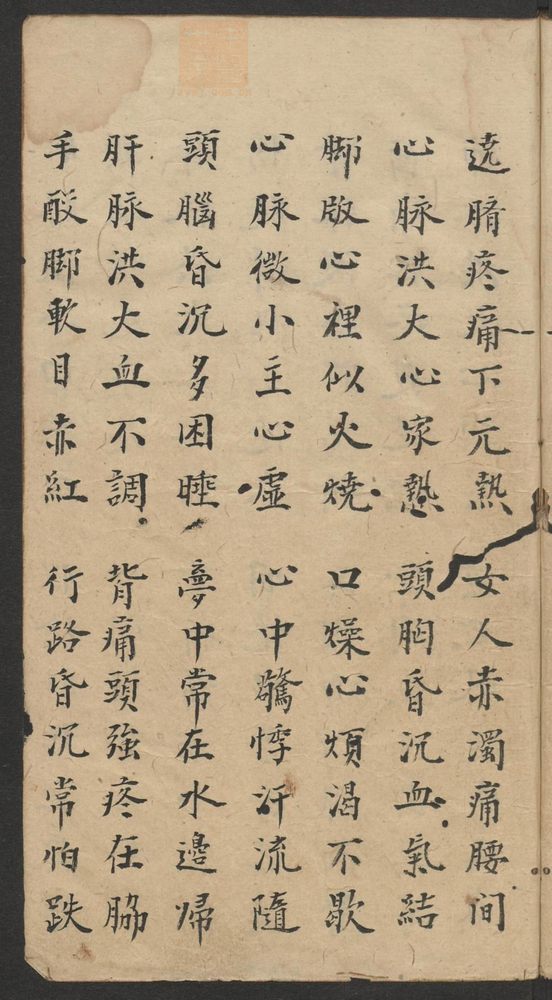 遶臍疼痛下元熱 女人赤濁痛腰间
心脉洪大心家熱 頭胸昏沉血氣結
脚版心裡似火燒 口燥心煩渴不歇
心脉微小主心虛 心中驚悸汗流隨
頭腦昏沉多困睡 夢中常在水邊歸
肝脉洪大血不調 背痛頭強疼在脇
手酸脚軟目赤紅 行路昏沉常怕跌